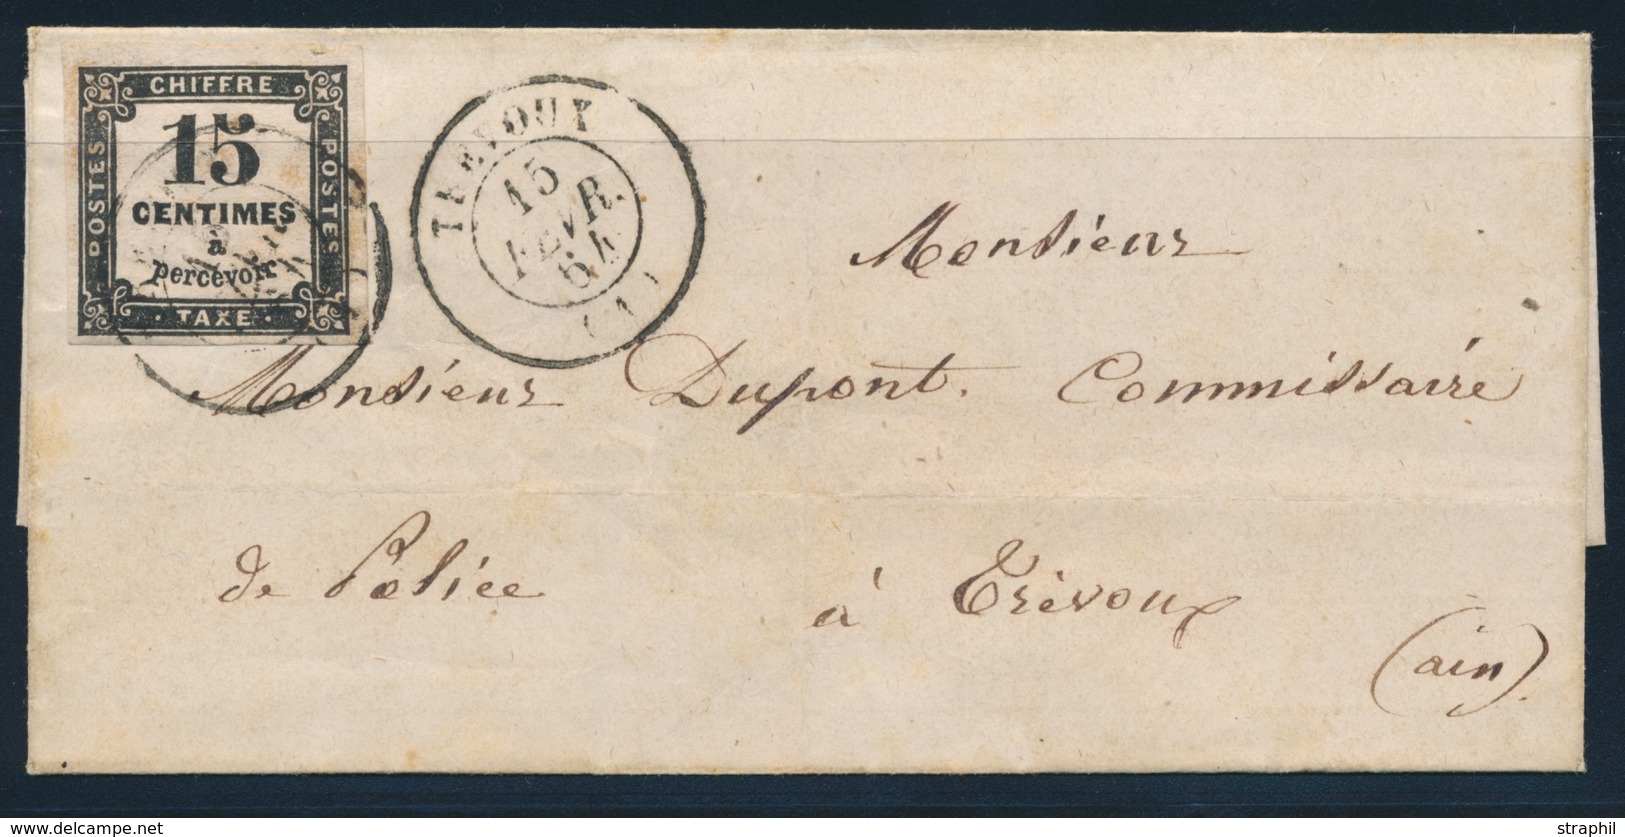 CHIFFRE
POSTES
15
CENTIMES
a
percevoir
POSTES
· TAXE ·
TREVOUX
15
FEVR.
64
(1)
Monsieur
Monsieur Dupont. Commissaire
de Police à Trévoux
(ain)
www.delcampe.net
straphil